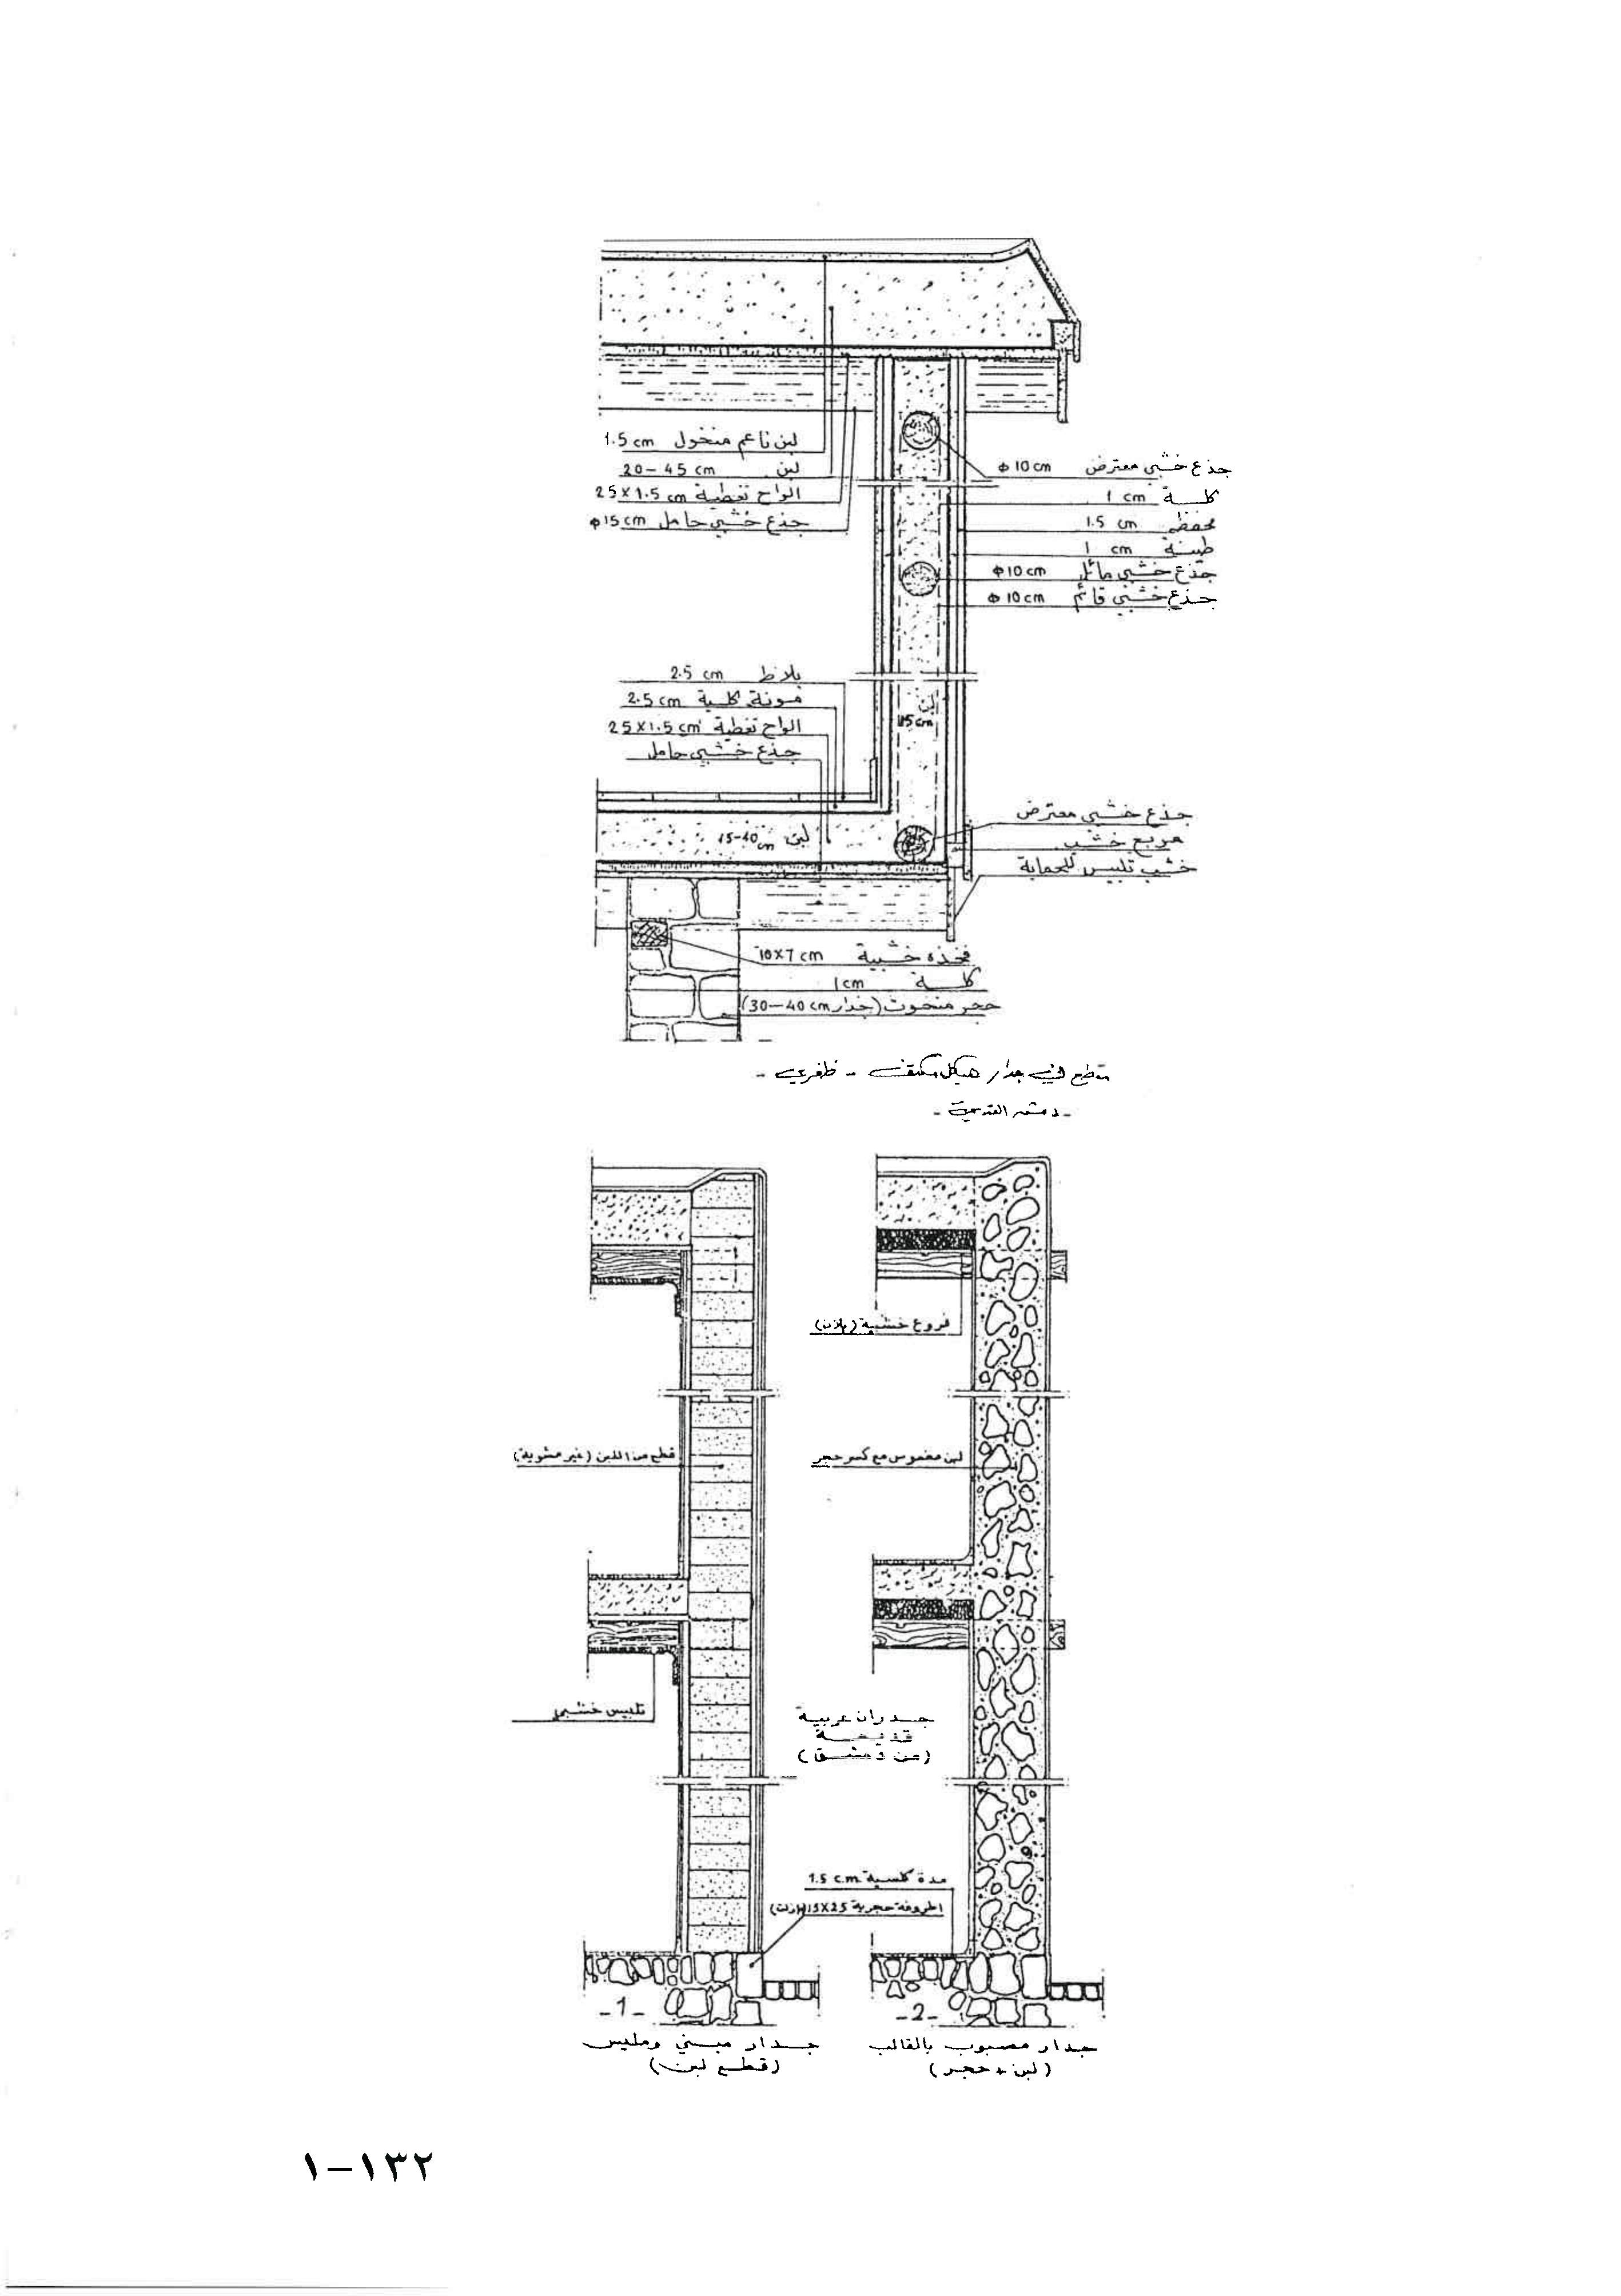 لبن ناعم منخول 1.5 cm
لبن 20-45 cm
الواح تغطية 25×1.5 cm
جذع خشبي حامل ф15 cm
جذع خشبي معترض ф10 cm
كلسة 1 cm
1.5 cm
طينة 1 cm
جذع خشبي مائل ф10 cm
جذع خشبي قائم ф10 cm
بلاط 2.5 cm
مونة كلسية 2.5 cm
الواح تغطية 25×1.5 cm
جذع خشبي حامل
لبن
15 cm
لبن 15-40 cm
جذع خشبي معترض
مربع خشب
خشب تلبيس للحماية
مخدة خشبية 10×7 cm
كلسة 1 cm
حجر منحوت (جدار 30-40 cm)
مقطع في جدار هيكل مكتف - ظفري -
- دمشق القديمة -
فروع خشبية (بلان)
قطع من اللبن (غير مشوية)
لبن مغموس مع كسر حجر
تلبيس خشبي
جدران عربية
قديمة
(من دمشق)
مدة كلسية 1.5 c.m
حجرية 15×25 (بازلت)
-1-
-2-
جدار مبني وملبس
(قطع لبن)
جدار مصبوب بالقالب
(لبن + حجر)
١-١٣٢